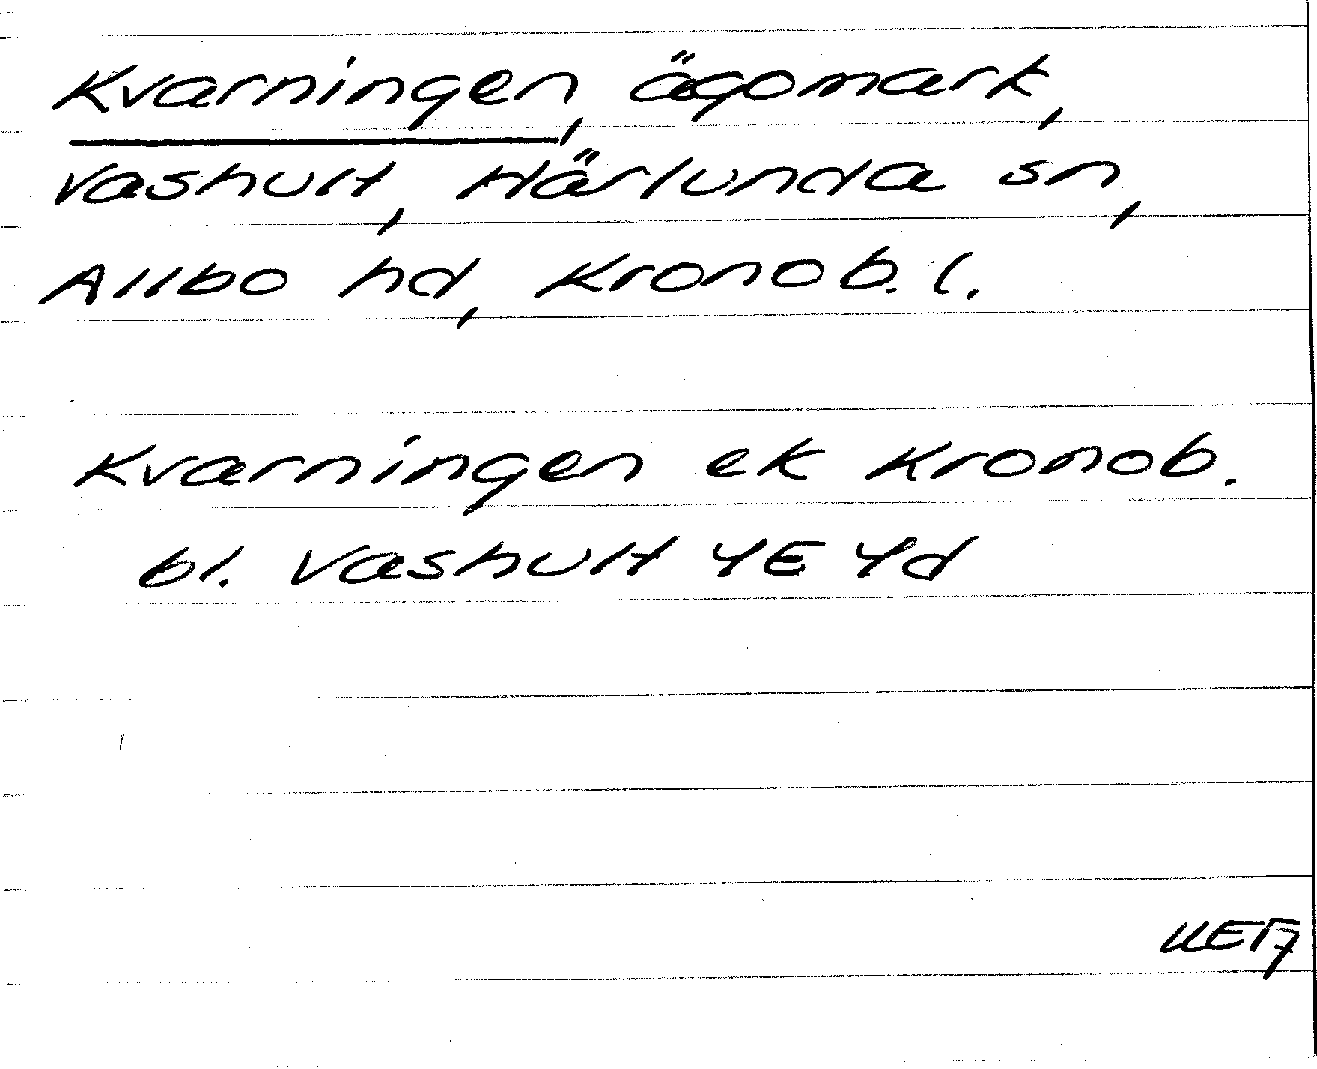 Kvarningen, ägomark,
Vashult, Härlunda sn,
Allbo hd, Kronob. l.
Kvarningen ek Kronob.
bl. Vashult 4E 4d